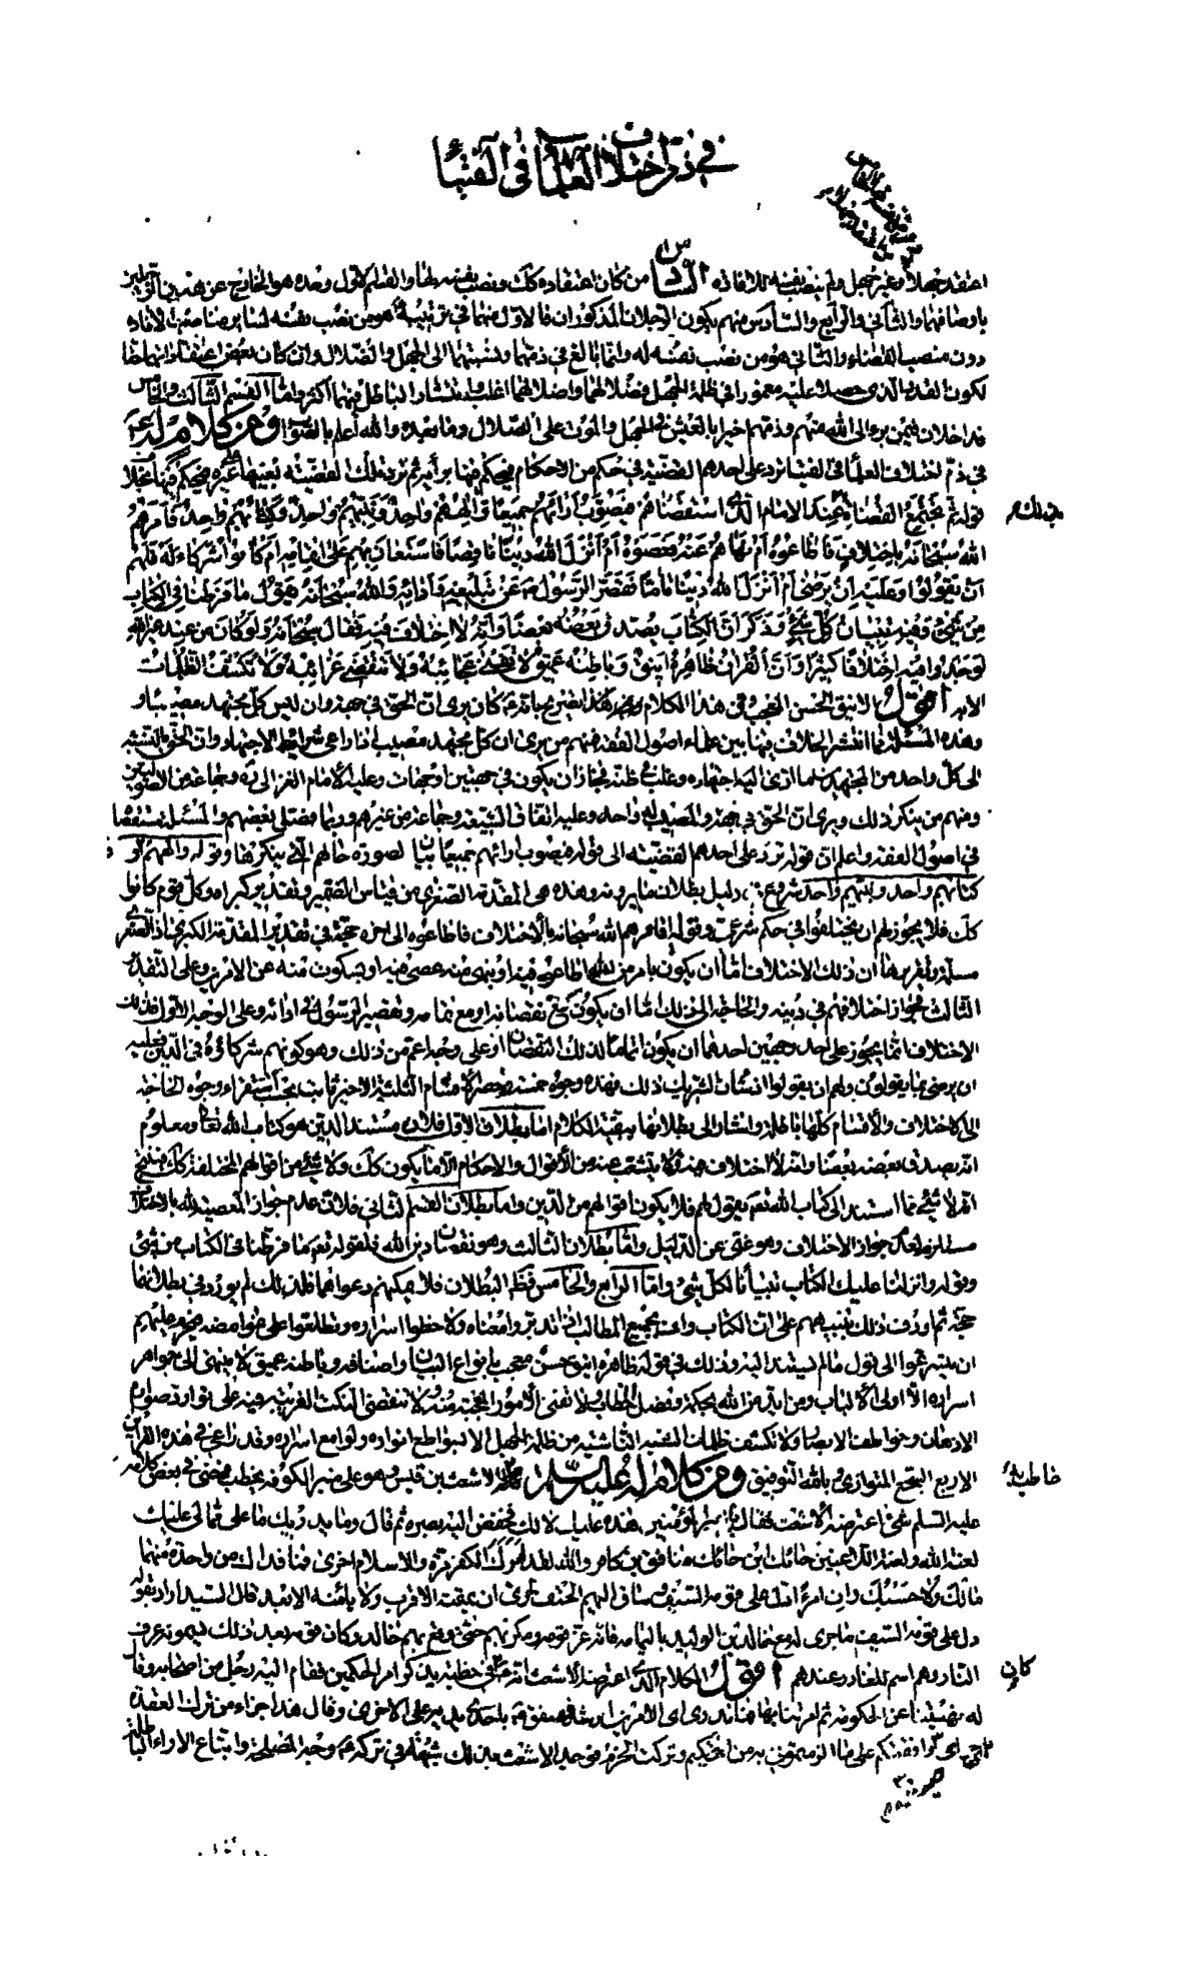 في ذم اختلاف العلماء في الفتيا
اعتقد جهلا وغير جهل ولم ينصب نفسه للافادة السادس من كان اعتقاده كذلك ونصب نفسه لها والقسم الاول وحده هو الخارج عن هذين الرجلين
باوصافهما والثاني والرابع والسادس منهم يكون الرجلان المذكوران فالاول منهما في ترتيبه هو من نصب نفسه لسائر مناصب الافادة
دون منصب القضاء والثاني هو من نصب نفسه له وانما بالغ في ذمهما ونسبتهما الى الجهل والضلال وان كان بعض اعتقاداتهما حقا
لكون القدر الذي حصلا عليه مغمورا في ظلمة الجهل فضلالهما واضلالهما اغلب وانتشار الباطل فيهما اكثر واما القسم الثالث والخامس
فداخلان فيمن برء الى الله منهم وذمهم خيرا بالعيش في الجهل والموت على الضلال وما بعده والله اعلم بالصواب ومن كلام له ع
في ذم اختلاف العلماء في الفتيا ترد على احدهم القضية في حكم من الاحكام فيحكم فيها برأيه ثم ترد تلك القضية بعينها على غيره فيحكم فيها بخلاف
قوله ثم يجتمع القضاة بذلك عند الامام الذي استقضاهم فيصوب آراءهم جميعا والههم واحد ونبيهم واحد وكتابهم واحد فأمرهم
الله سبحانه بالاختلاف فأطاعوه أم نهاهم عنه فعصوه أم أنزل الله دينا ناقصا فاستعان بهم على اتمامه أم كانوا شركاء له فلهم
أن يقولوا وعليه أن يرضى أم أنزل الله دينا تاما فقصر الرسول ص عن تبليغه وأدائه والله سبحانه يقول ما فرطنا في الكتاب
من شيء وفيه تبيان كل شيء وذكر أن الكتاب يصدق بعضه بعضا وأنه لا اختلاف فيه فقال سبحانه ولو كان من عند غير الله
لوجدوا فيه اختلافا كثيرا وأن القرآن ظاهره أنيق وباطنه عميق لا تفنى عجائبه ولا تنقضي غرائبه ولا تكشف الظلمات
الا به اقول الانيق الحسن المعجب وفي هذا الكلام تصريح بانه ع كان يرى ان الحق في جهة وان ليس كل مجتهد مصيبا و
وهذه المسئلة مما انتشر الخلاف فيها بين علماء اصول الفقه فمنهم من يرى ان كل مجتهد مصيب اذا راعى شرائط الاجتهاد وان الحق بالنسبة
الى كل واحد من المجتهدين ما ادى اليه اجتهاده وغلب على ظنه فجاز ان يكون في جهتين او جهات وعليه الامام الغزالي ره وجماعة من الاصوليين
ومنهم من ينكر ذلك ويرى ان الحق في جهة والمصيب له واحد وعليه اتفاق الشيعة وجماعة من غيرهم وربما فصل بعضهم والمسئلة مستقصاة
في اصول الفقه واعلم ان قوله ترد على احدهم القضية الى قوله فيصوب آراءهم جميعا بيان لصورة حالهم التي ينكرها وقوله والههم
كتابهم واحد ونبيهم واحد شروع في دليل بطلان ما يرونه وهذه هي المقدمة الصغرى من قياس الضمير وتقدير كبراه وكل قوم كانوا
كذلك فلا يجوز لهم ان يختلفوا في حكم شرعي وقوله افامرهم الله سبحانه بالاختلاف فاطاعوه الى اخره حجة في تقدير المقدمة الكبرى اذ الصغرى
مسلمة وتقريرها ان ذلك الاختلاف اما ان يكون بامر من الله اطاعوه فيه او نهى منه عصوه فيه او بسكوت منه عن الامرين وعلى التقدير
الثالث فجواز اختلافهم في دينه والحاجة الى ذلك اما ان يكون مع نقصانه او مع تمامه وتقصير الرسول في ادائه وعلى الوجه الاول فذلك
الاختلاف انما يجوز على احد وجهين احدهما ان يكون اتماما لذلك النقصان او على وجه اعم من ذلك وهو كونهم شركاؤه في الدين فعليه
ان يرضى بما يقولون ولهم ان يقولوا اذ شان الشريك ذلك فهذه وجوه خمسة وحصر الاقسام الثلثة الاخيرة ثابت بحسب استقراء وجوه الحاجة
الى الاختلاف والاقسام كلها باطلة واشار الى بطلانها ببقية الكلام اما بطلان الاول فلان مستند الدين هو كتاب الله تعالى ومعلوم
انه يصدق بعضه بعضا وانه لا اختلاف فيه ولا يتشعب عنه من الاقوال والاحكام الا ما يكون كذلك ولا شيء من اقوالهم المختلفة كذلك فينتج
انه لا شيء مما استند الى كتاب الله تعم بقول لهم فلا يكون اقوالهم من الدين واما بطلان القسم الثاني فلان عدم جواز المعصية لله بالاختلاف
مستلزم لعدم جواز الاختلاف وهو غني عن الدليل واما بطلان الثالث وهو نقصان دين الله فلقوله تعم ما فرطنا في الكتاب من شيء
وقوله وانزلنا عليك الكتاب تبيانا لكل شيء واما الرابع والخامس فظ البطلان فلا يمكنهم دعواهما فلذلك لم يورد في بطلانهما
حجة ثم اردف ذلك بتنبيههم على ان الكتاب واف بجميع المطالب اذا تدبروا معناه ولاحظوا اسراره وتطلعوا على غوامضه فيحرم عليهم
ان يتسرعوا الى قول ما لم يستند اليه وذلك في قوله ظاهره انيق حسن معجب بانواع البيان واصنافه وباطنه عميق لا ينتهي الى جواهر
اسراره الا اولوا الالباب ومن ايد من الله بحكمة وفصل الخطاب ولا تفنى الامور المعجبة منه ولا تنقضي النكت الغريبة فيه على توارد صوارم
الاذهان وخواطف الابصار ولا تكشف ظلمات الشبه الناشئة من ظلمة الجهل الا بسواطع انواره ولوامع اسراره وقد راعى في هذه القرائن
الاربع السجع المتوازي وبالله التوفيق ومن كلام له عليه السلم قاله للاشعث بن قيس وهو على منبر الكوفة يخطب فمضى في بعض كلامه
عليه السلم شيء اعترضه الاشعث فقال يا امير المؤمنين هذه عليك لا لك فخفض اليه بصره ثم قال وما يدريك ما علي مما لي عليك
لعنة الله ولعنة اللاعنين حائك ابن حائك منافق بن كافر والله لقد اسرك الكفر مرة والاسلام اخرى فما فداك من واحدة منهما
مالك ولا حسبك وان امرءا دل على قومه السيف وساق اليهم الحتف لحري ان يمقته الاقرب ولا يأمنه الابعد قال السيد اراد بقوله
دل على قومه السيف ما جرى له مع خالد بن الوليد باليمامة فانه غر قومه ومكر بهم حتى وقع بهم خالد وكان قومه بعد ذلك يسمونه عرف
النار وهو اسم للغادر عندهم اقول الكلام الذي اعترضه الاشعث انه ع كان في خطبته يذكر امر الحكمين فقام اليه رجل من اصحابه وقال
له نهيتنا عن الحكومة ثم امرتنا بها فما ندري اي الامرين ارشد فصفق ع باحدى يديه على الاخرى وقال هذا جزاء من ترك العقدة
اي جزائي اذ وافقتكم على ما الزمتموني به من التحكيم وتركت الحزم فوجد الاشعث بذلك شبهة في تركه ع وجه المصلحة واتباع الاراء الباطلة